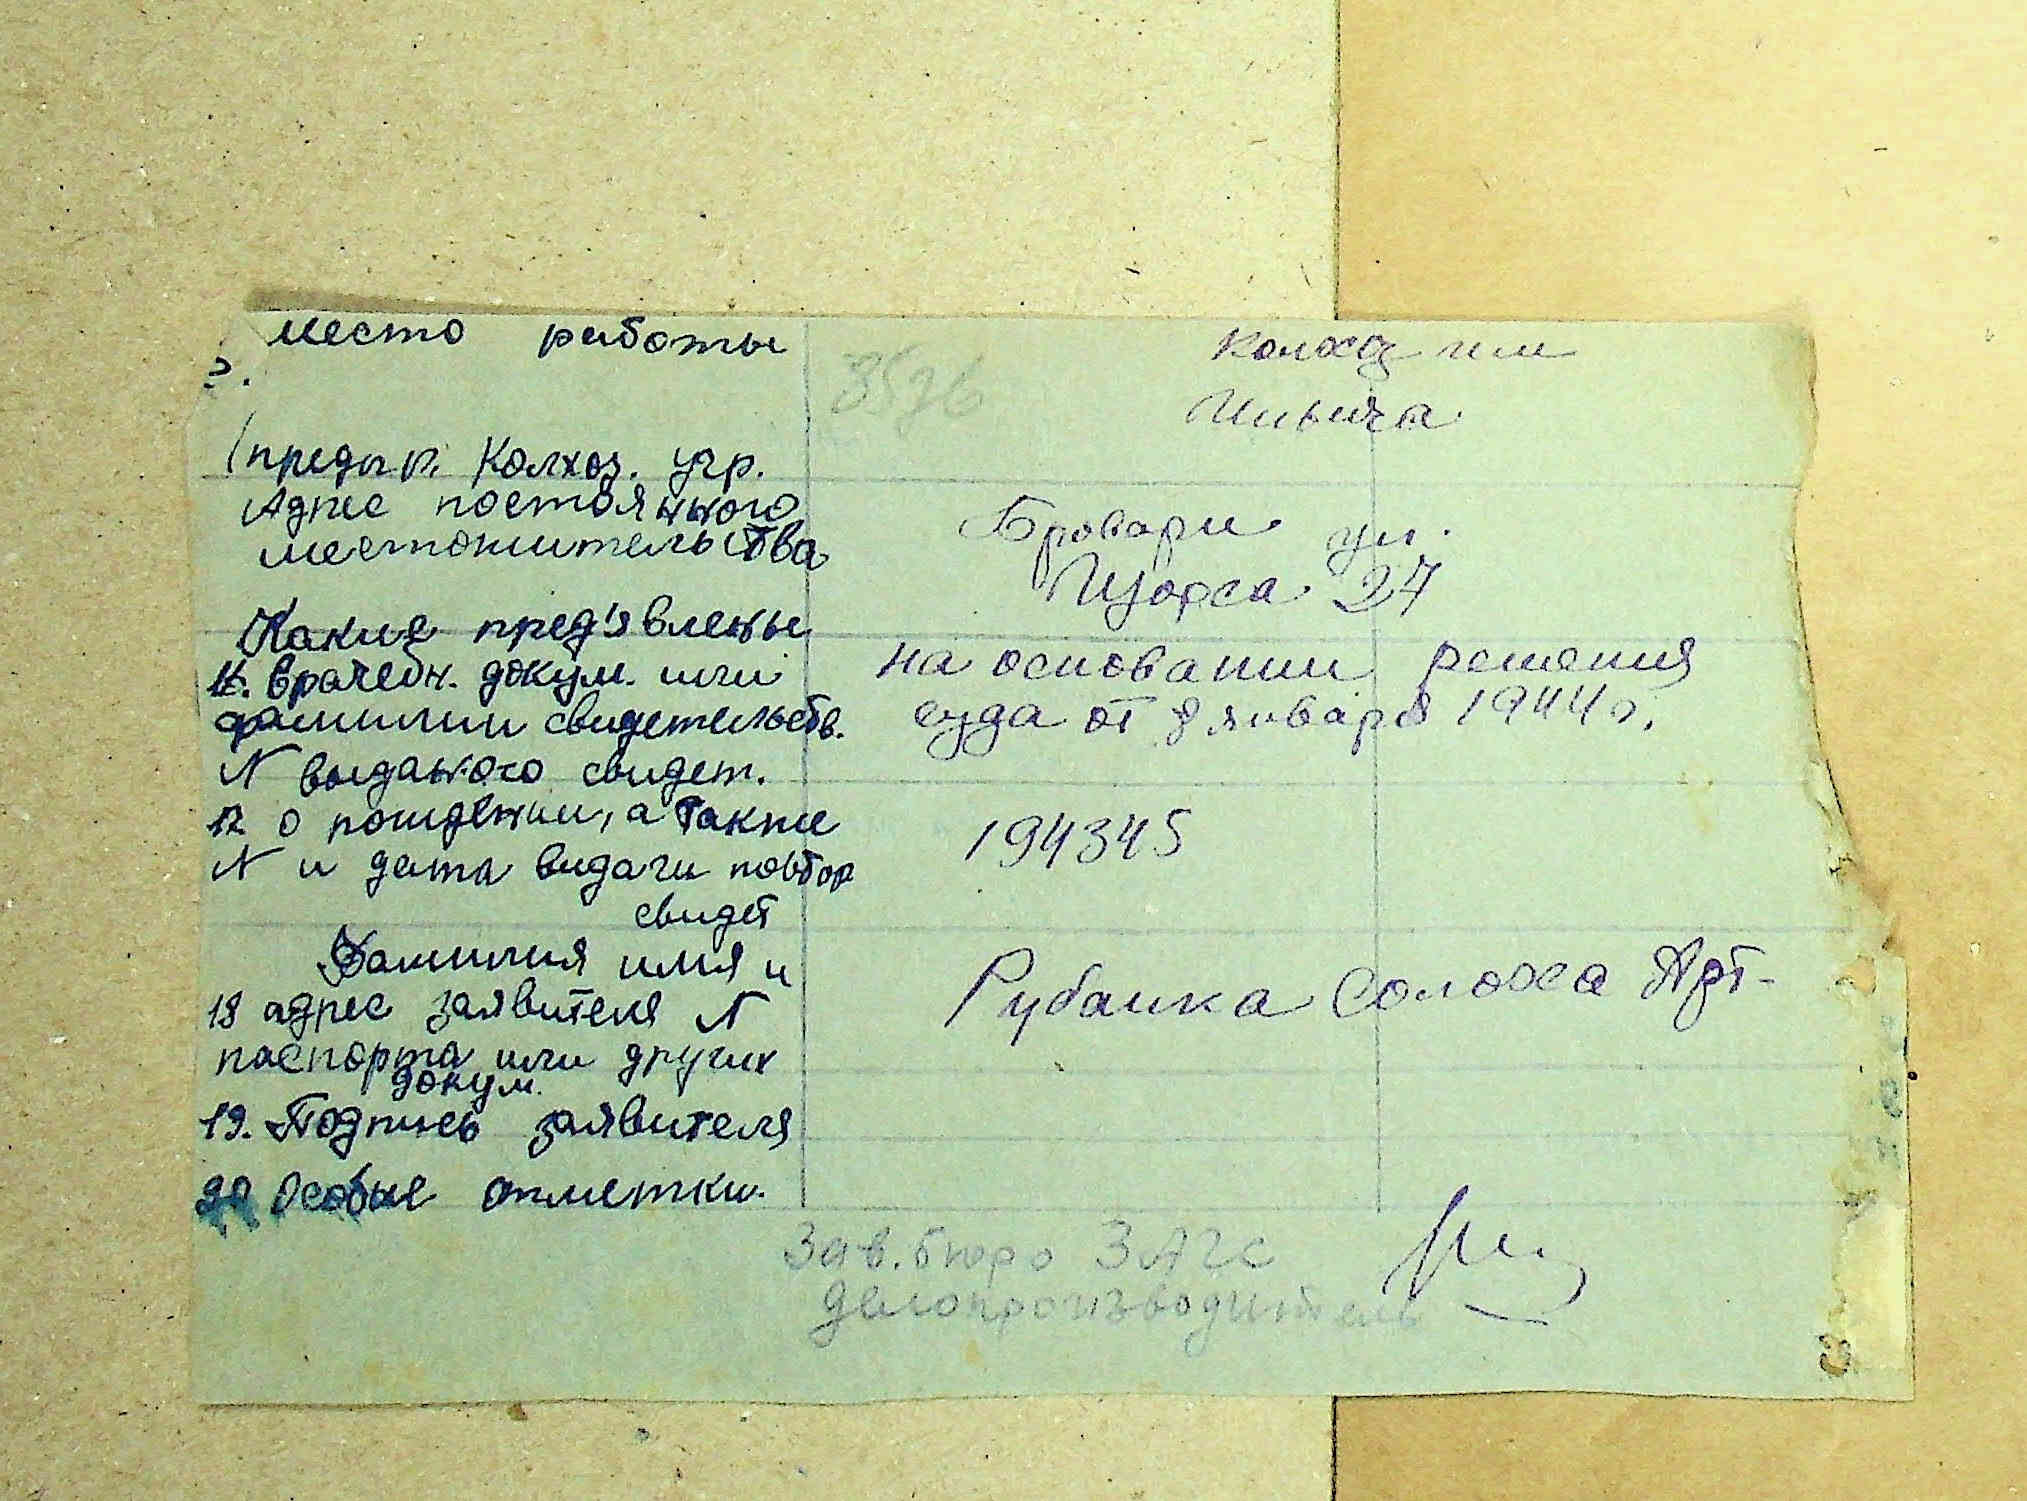 место работы
?.
(предпр. Колхоз. учр.
Адрес постоянного
местожительства
Какие пред'явлены
16. врачебн. докум. или
фамилии свидетельств.
N выданого свидет.
17 о рождении, а также
N и дата видачи повтор
свидет
Фамилия имя и
18 адрес заявителя N
паспорта или других
докум.
19. Подпись заявителя
20 Особые отметки.
3526
колхоз им
Ильича
Бровари ул.
Щорса 27
на основании решения
суда от 8 января 1944 г.
194345
Рубанка Солоха Арт-
Зав. бюро ЗАГС
делопроизводитель